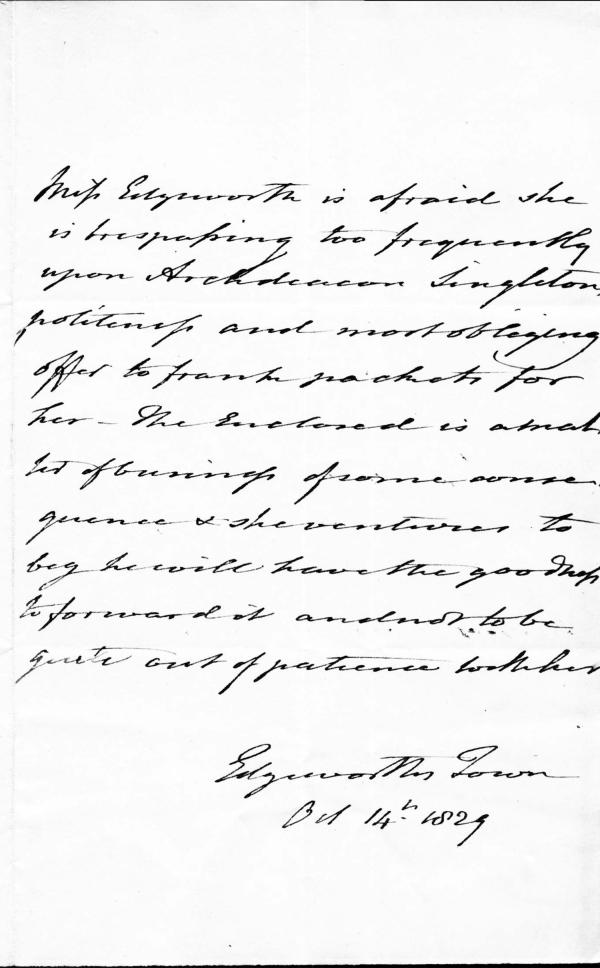 Miss Edgeworth is afraid she
is trespassing too frequently
upon Archdeacon Singleton
politeness and most obliging
offer to frank packets for
her – The Enclosed is a mat
ter of business of some conse
quence & she ventures to
beg he will have the goodness
to forward it and not to be
quite out of patience with her
Edgeworths Town
Oct 14th 1829